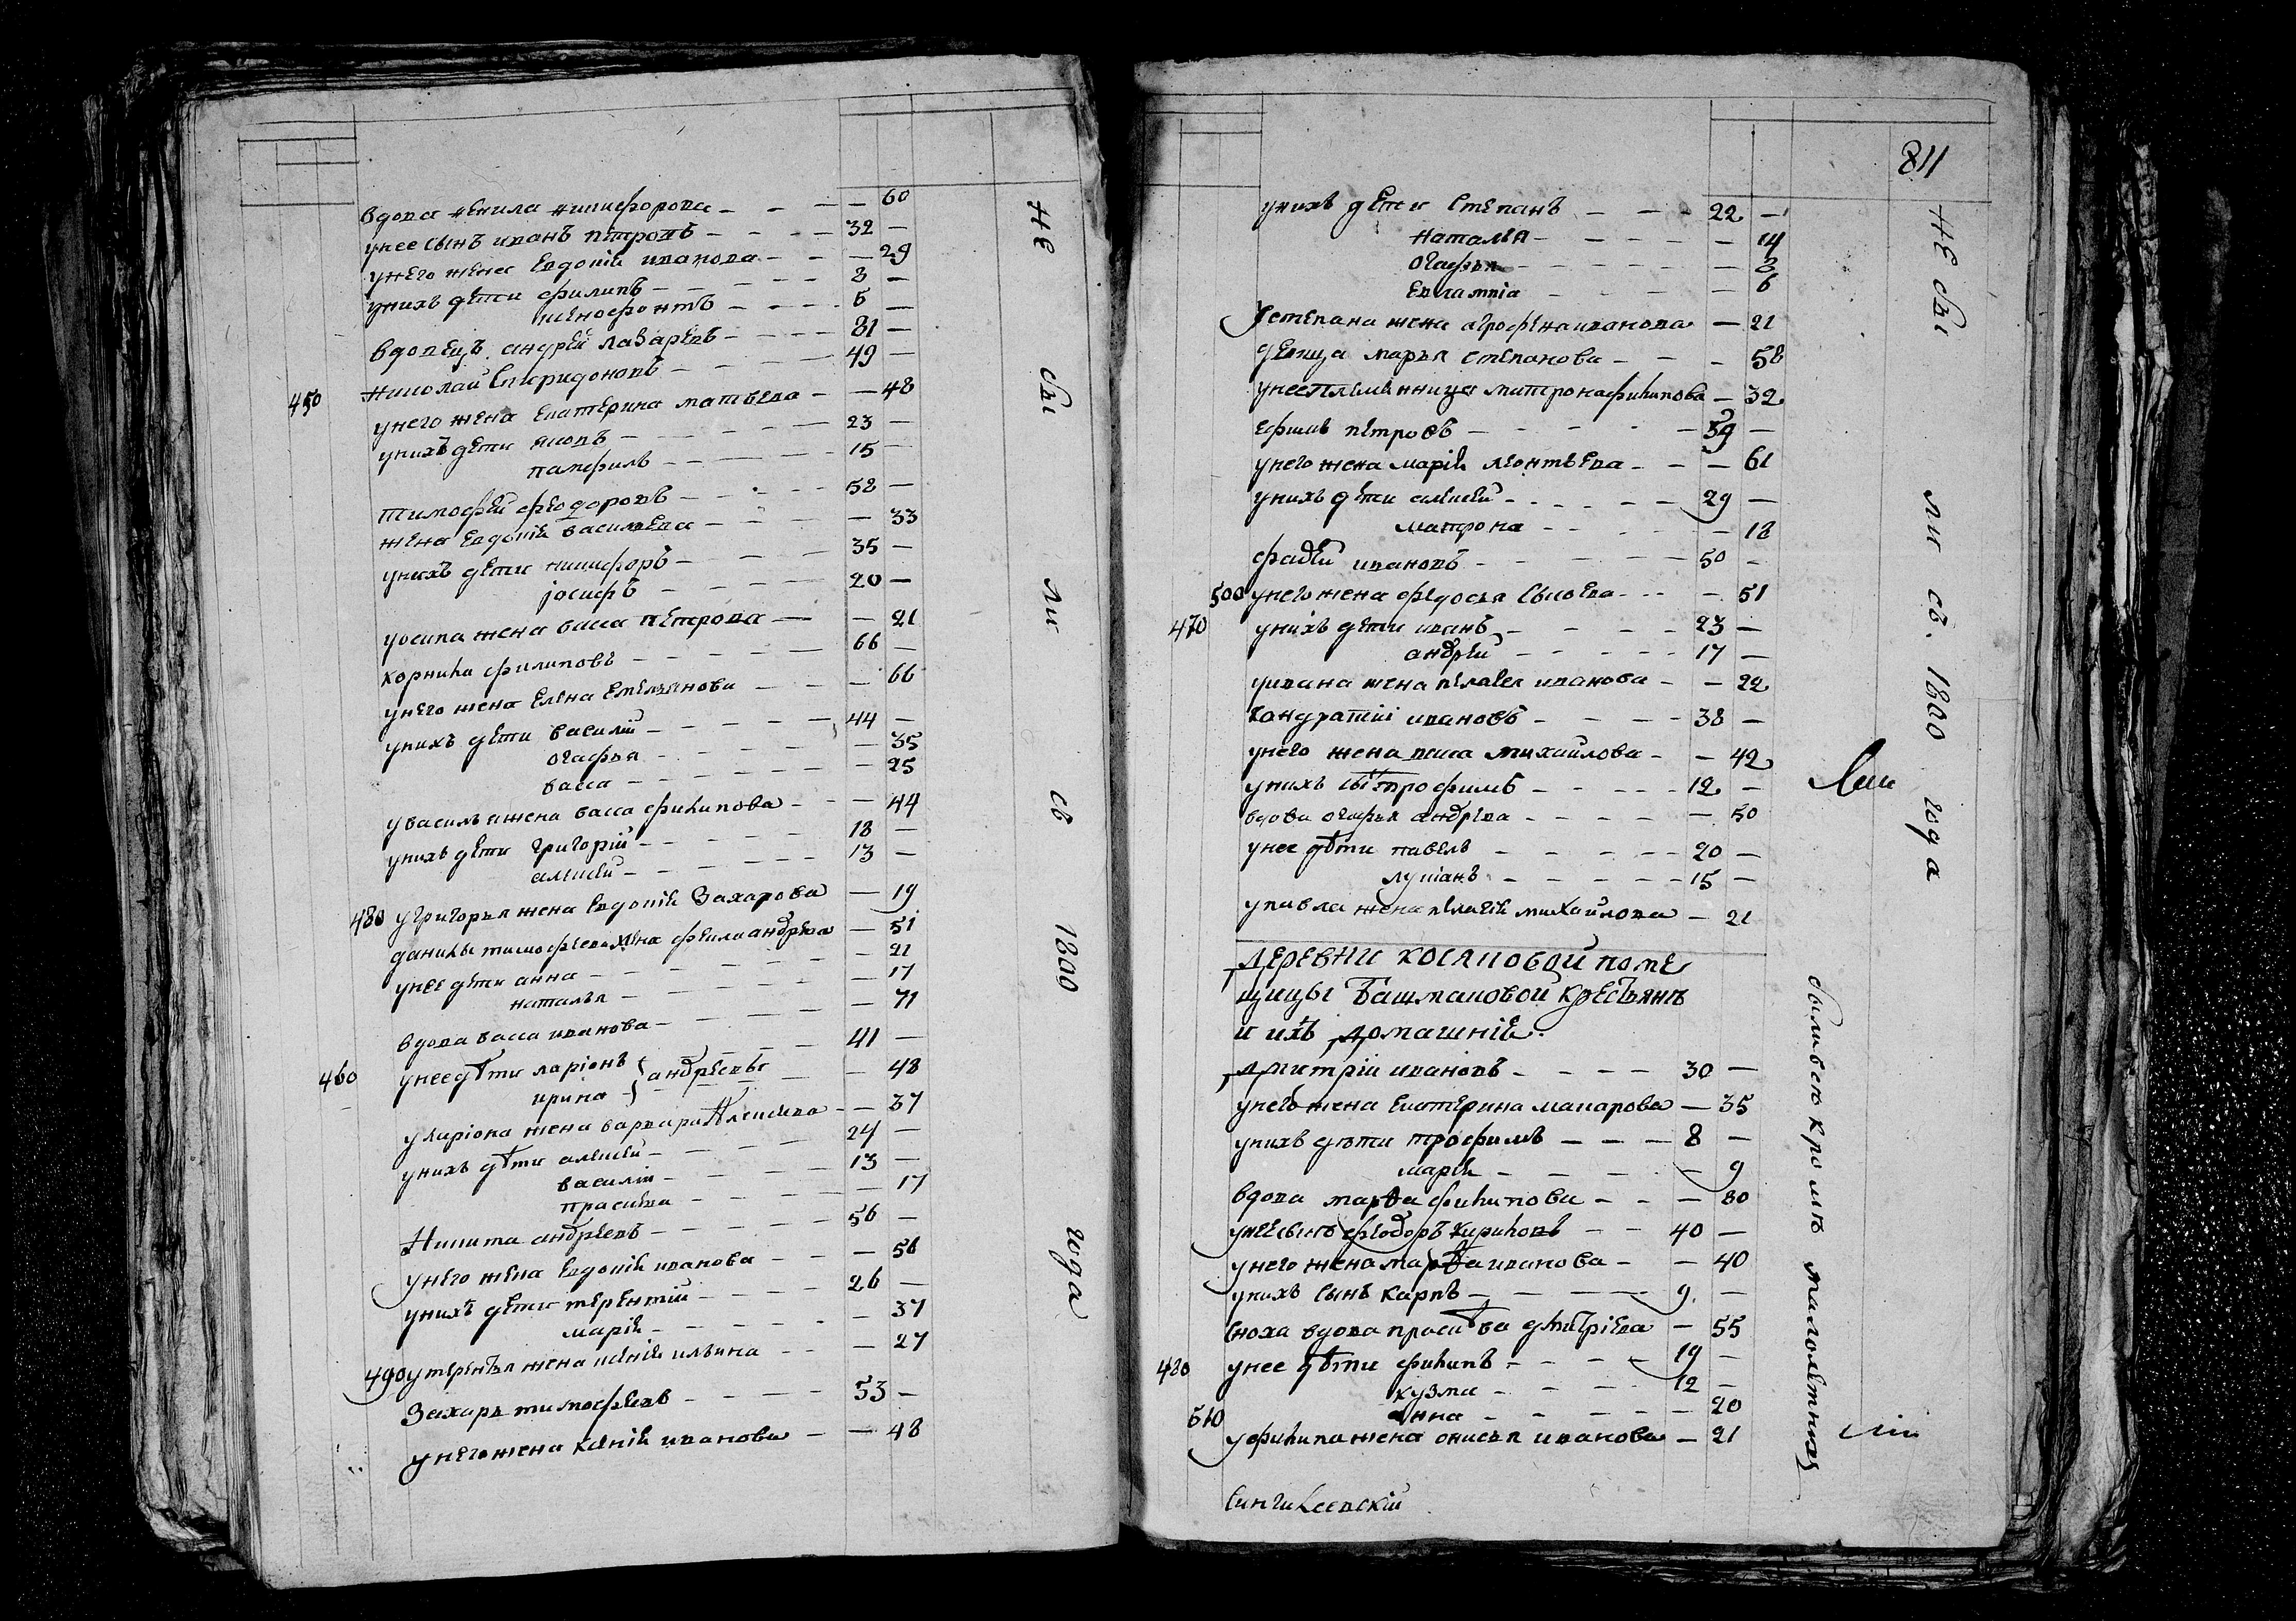 вдова ненила никифорова — 60
унее сынъ иванъ петровъ — 32 —
унего жена Евдокия иванова — 29
унихъ дети филипъ — 8 —
ксенофонтъ — 5 —
вдовецъ андрей лазаревъ — 81 —
450 николай спиридоновъ — 49 —
унего жена Екатерина матвеева — 48
унихъ дети яковъ — 23 —
памфилъ — 15 —
тимофей феодоровъ — 58 —
жена Евдокия васильева — 33
унихъ дети никифоръ — 35 —
іосифъ — 20 —
уосипа жена васса петрова — 21
корнила филиповъ — 66 —
унего жена Елена Емельянова — 66
унихъ дети василій — 44 —
огафья — 35
васса — 25
увасилья жена васса филипова — 44
унихъ дети григорій — 18 —
алексей — 13 —
480 угригорья жена Евдокия Захарова — 19
данилы тимофеева жена андреева — 51
унее дети анна — 21
наталья — 17
вдова васса иванова — 71
460 унее дѣти ларіонъ } андреевы — 41 —
ирина } — 48
уларіона жена варвара Алексеева — 37
унихъ дѣти алексей — 24 —
василій — 13 —
прасковья — 17
Никита андреевъ — 56 —
унего жена Евдокия иванова — 56
унихъ дети терентий — 26 —
мария — 37
490 утерентья жена ксения ильина — 27
Захаръ тимофеевъ — 53 —
унего жена ксения иванова — 48
НЕ бы ли съ 1800 года
811
унихъ дети степанъ — 22 —
наталья — 14
огафья — 8
Евлампіа — 6
устепана жена агрофена иванова — 21
девица марья степанова — 58
унее племянница матрона филипова — 32
ефимъ петровъ — 59 —
унего жена мария леонтьева — 61
унихъ дети алексей — 29 —
матрона — 18
фадей ивановъ — 50 —
500 унего жена федосья сысоева — 51
470 унихъ дети иванъ — 23 —
андрей — 17 —
уивана жена пелагея иванова — 22
кондратий ивановъ — 38 —
унего жена михайлова — 42
унихъ сынъ трофимъ — 12 —
вдова огафья андреева — 50
унее дѣти павелъ — 20 —
лукіанъ — 15 —
упавла жена пелагия михайлова — 21
ДЕРЕВНИ КОСЯКОВОЙ ПОМЕ
щицы Башмаковой Крестьянъ
и ихъ Домашніе
Дмитрій ивановъ — 30 —
унего жена Екатерина макарова — 35
унихъ дѣти трофимъ — 8 —
мария — 9
вдова марѳа филипова — 80
унее сынъ феодоръ кириловъ — 40 —
унего жена марѳа иванова — 40
унихъ сынъ карпъ — 9 —
сноха вдова прасковья дмитріева — 55
480 унее дѣти филипъ — 19 —
кузма — 12 —
510 анна — 20
уфилипа жена онисья иванова — 21
НЕ бы ли съ 1800 года
были всѣ кромѣ малолѣтнихъ